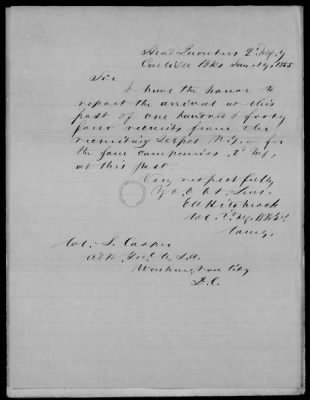 Head Quarters 2d Inf.y
Carlisle Bks Jan 19, 1845
Sir
I have the honor to
report the arrival at this
post of one hundred & forty
four recruits from the
recruiting Depot N.Y. for
the four companies, 2d Inf,
at this post.
Very respectfully
Yr. Obt. Serv.
E A Hitchcock
Comg.
Col. S. Cooper
Washington City
D.C.